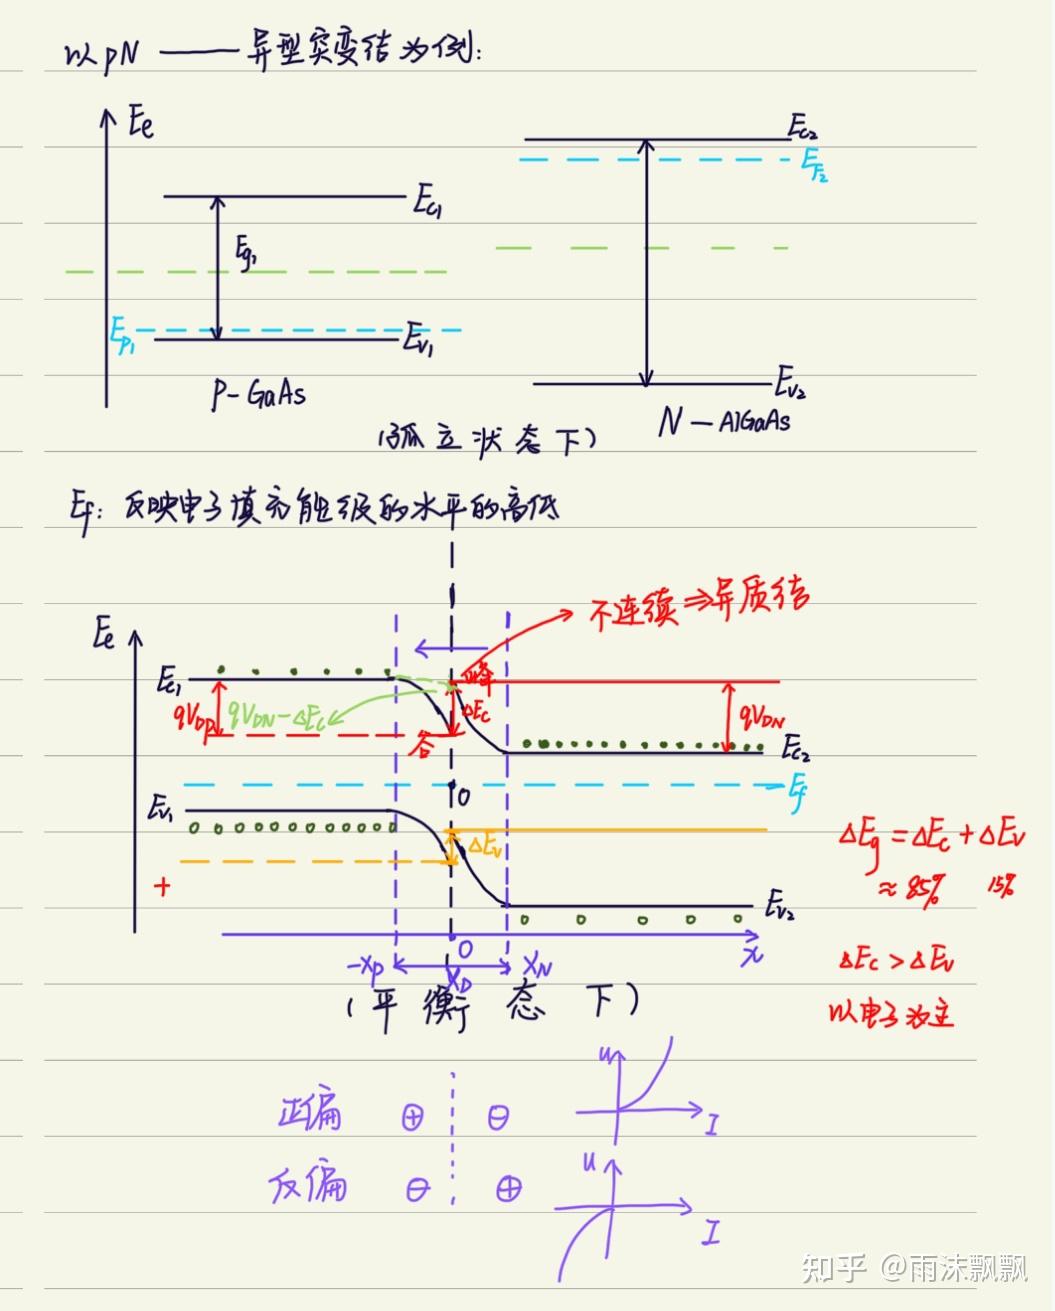 以pN ——异型突变结为例:
Ee
Ec2
EF2
Ec1
Eg1
Ep1
Ev1
P-GaAs
Ev2
N-AlGaAs
(孤立状态下)
Ef: 反映电子填充能级的水平的高低
不连续⇒异质结
Ee
Ec1
峰
qVDp
qVDN-ΔEc
ΔEc
qVDN
谷
Ec2
Ef
0
Ev1
ΔEv
ΔEg = ΔEc + ΔEv
≈ 85% 15%
+
Ev2
0
x
-xp
XD
XN
ΔEc > ΔEv
以电子为主
(平衡态下)
正偏 ⊕ ⊖
u
I
反偏 ⊖ ⊕
u
I
知乎 @雨沫飘飘